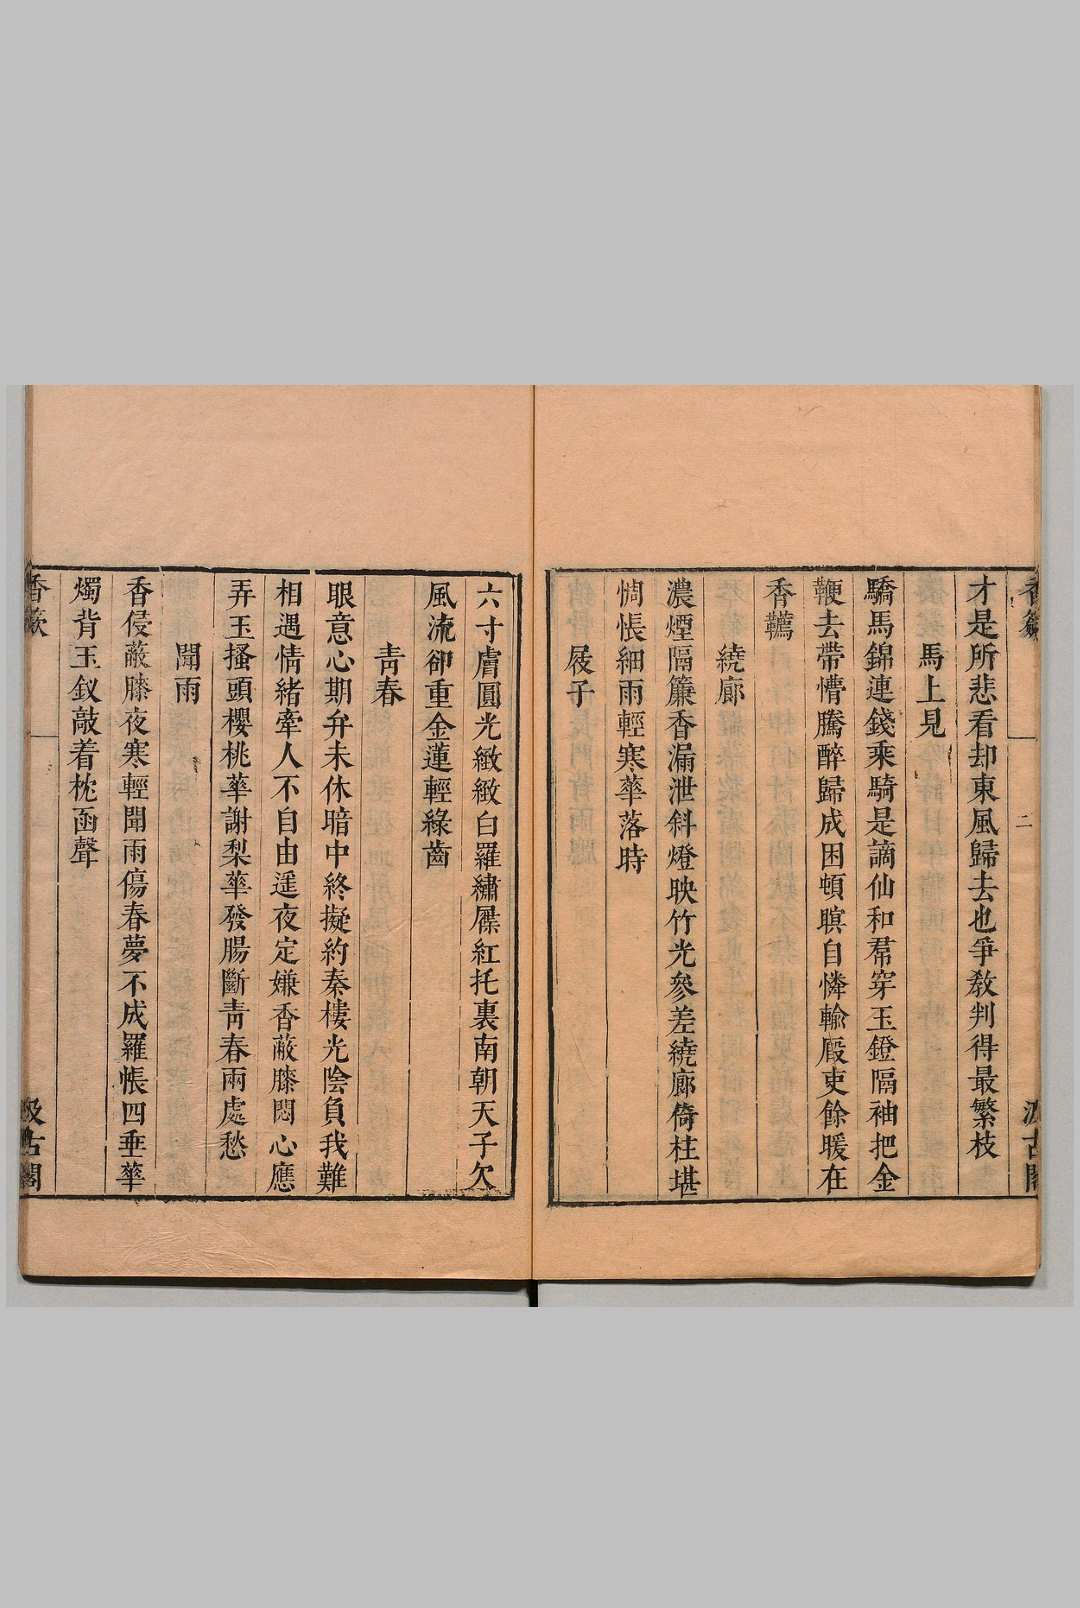 才是所悲看却東風歸去也爭教判得最繁枝
馬上見
驕馬錦連錢乘騎是謫仙和帬穿玉鐙隔袖把金
鞭去帶懵騰醉歸成困頓瞑自憐輸廄吏餘暖在
香韉
繞廊
濃煙隔簾香漏泄斜燈映竹光參差繞廊倚柱堪
惆悵細雨輕寒蕐落時
屐子
六寸膚圓光緻緻白羅繡屧紅托裏南朝天子欠
風流卻重金蓮輕綠齒
青春
眼意心期弁未休暗中終擬約秦樓光陰負我難
相遇情緒牽人不自由遥夜定嫌香蔽膝悶心應
弄玉搔頭櫻桃蕐謝梨蕐發腸斷青春兩處愁
聞雨
香侵蔽膝夜寒輕聞雨傷春夢不成羅帳四垂蕐
燭背玉釵敲着枕函聲
香
二
汲古閣